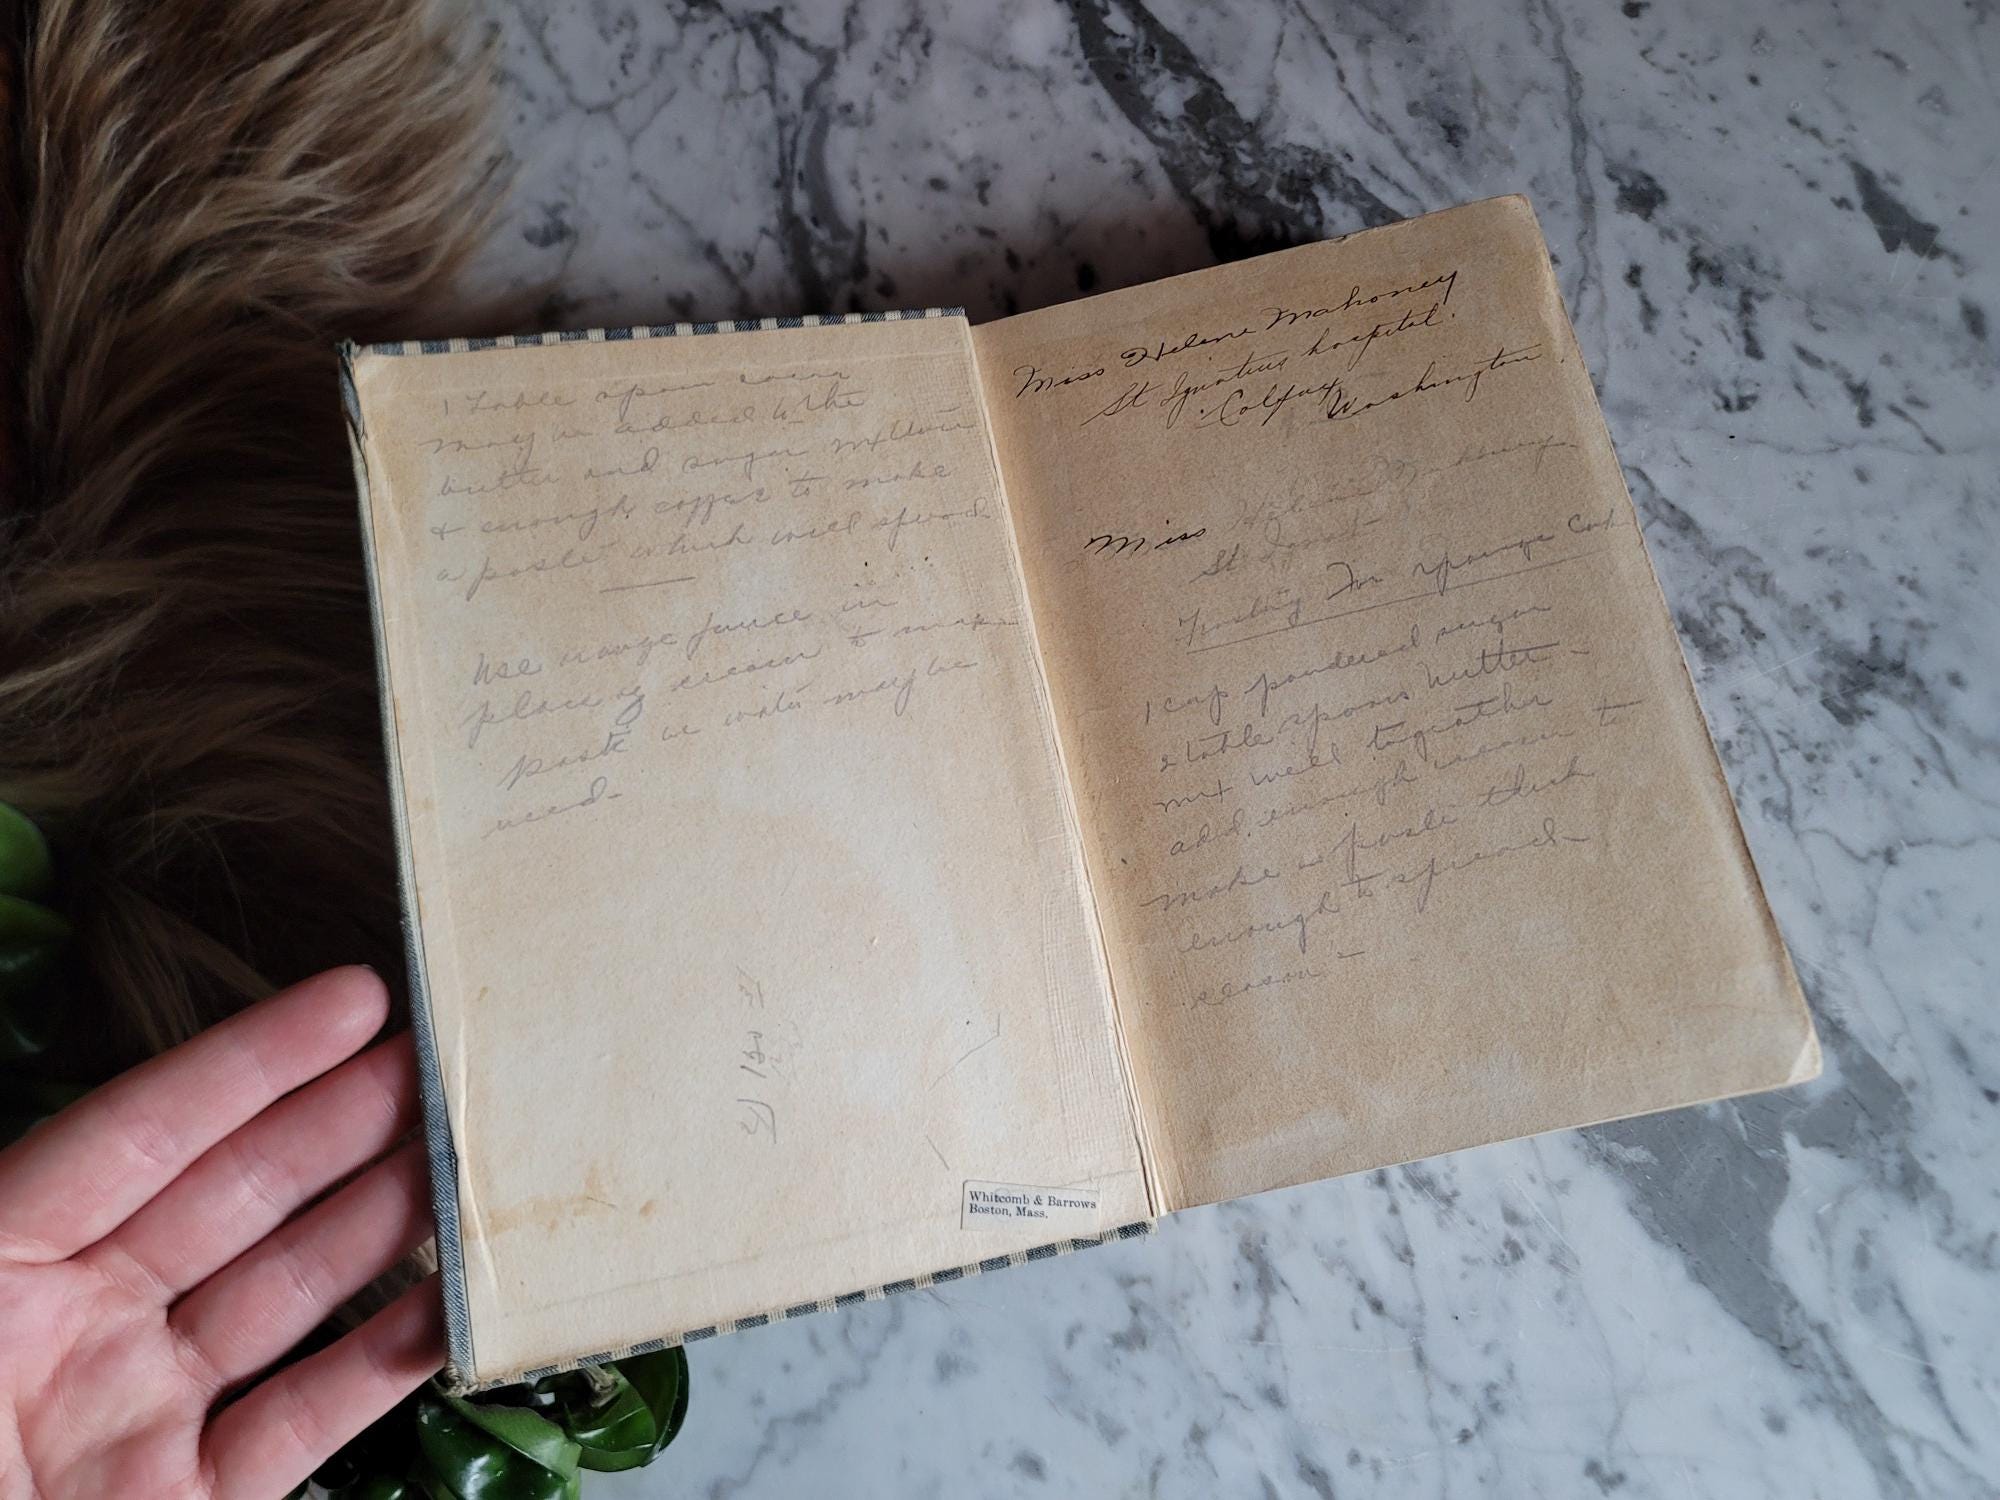 1 Table spoon cocoa
may be added to the
butter and sugar mxture
& enough coffee to make
a paste which will spread
Use orange juice in
place of cream to make
paste or water may be
used-
Whitcomb & Barrows
Boston, Mass.
Miss Helene Mahoney
St Ignatius hospital.
Colfax Washington.
Miss Helene Mahoney
St Ignat
Frosting For sponge Cake
1 cup powdered sugar
2 table spoons butter-
mx well togeather
add enough cream to
make a paste thick
enough to spread-
season-